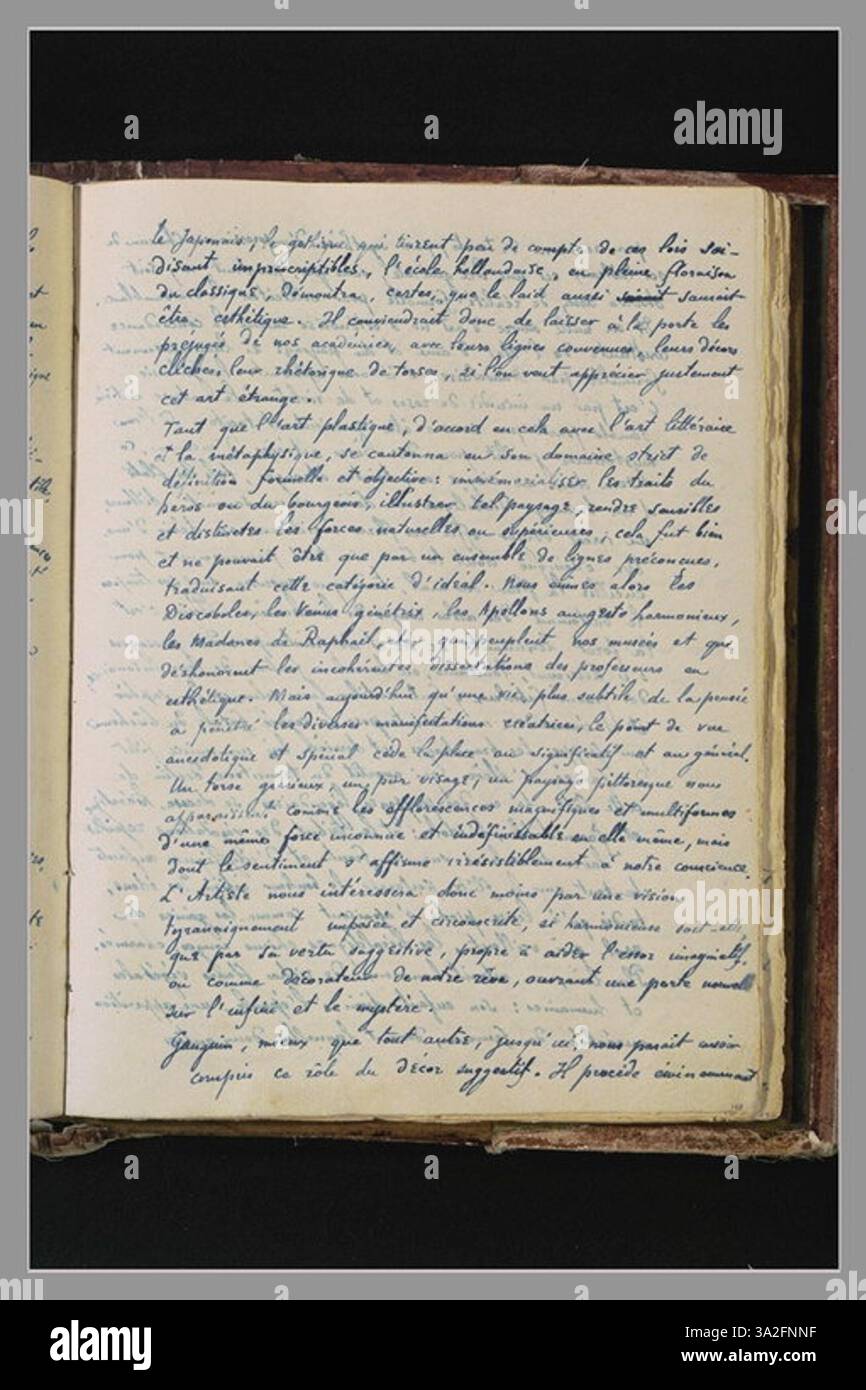 le Japonais, le gothique qui tinrent peu de compte de ces lois soi-
disant imprescriptibles, l'école hollandaise, en pleine floraison
du classique, démontra, certes, que le laid aussi saurait
être esthétique. Il conviendrait donc de laisser à la porte les
préjugés de nos académies, avec leurs lignes convenues, leurs décors
clichés, leur rhétorique de torses, si l'on veut apprécier justement
cet art étrange.
Tant que l'art plastique, d'accord en cela avec l'art littéraire
et la métaphysique, se cantonna en son domaine strict de
définition formelle et objective: immémorialiser les traits du
héros ou du bourgeois, illustrer tel paysage, rendre sensibles
et distinctes les forces naturelles ou supérieures, cela fut bien
et ne pouvait être que par un ensemble de lignes préconçues,
traduisant cette catégorie d'idéal. Nous eûmes alors les
Discoboles, les Vénus génétrix, les Apollons au geste harmonieux,
les Madones de Raphaël, qui peuplent nos musées et que
déshonorent les incohérentes dissertations des professeurs en
esthétique. Mais aujourd'hui qu'une vie plus subtile de la pensée
a pénétré les diverses manifestations créatrices, le point de vue
anecdotique et spécial cède la place au significatif et au général.
Un torse gracieux, un pur visage, un paysage pittoresque nous
apparaissent comme les efflorescences magnifiques et multiformes
d'une même force inconnue et indéfinissable en elle même, mais
dont le sentiment s'affirme irrésistiblement à notre conscience.
L'Artiste nous intéressera donc moins par une vision
tyranniquement imposée et circonscrite, si harmonieuse soit-elle,
que par sa vertu suggestive, propre à aider l'essor imaginatif
ou comme décorateur de notre rêve, ouvrant une porte nouvelle
sur l'infini et le mystère.
Gauguin, mieux que tout autre, jusqu'ici, nous paraît avoir
compris ce rôle du décor suggestif. Il procède
198
alamy
a
a
a
alamy
3A2FNNF
www.alamy.com